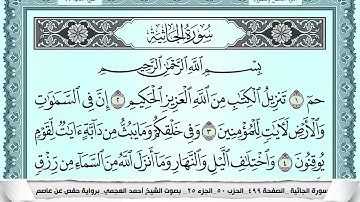 سُورَةُ الجَاثِيَةِ
بِسْمِ اللَّهِ الرَّحْمَٰنِ الرَّحِيمِ
حمٓ ١ تَنزِيلُ الْكِتَٰبِ مِنَ اللَّهِ الْعَزِيزِ الْحَكِيمِ ٢ إِنَّ فِي السَّمَٰوَٰتِ
وَالْأَرْضِ لَأٓيَٰتٍ لِّلْمُؤْمِنِينَ ٣ وَفِي خَلْقِكُمْ وَمَا يَبُثُّ مِن دَآبَّةٍ ءَايَٰتٌ لِّقَوْمٍ
يُوقِنُونَ ٤ وَاخْتِلَٰفِ الَّيْلِ وَالنَّهَارِ وَمَآ أَنزَلَ اللَّهُ مِنَ السَّمَآءِ مِن رِّزْقٍ
سورة الجاثية _ الصفحة ٤٩٩ _ الحزب ٥٠ _ الجزء ٢٥ _ بصوت الشيخ أحمد العجمي _ برواية حفص عن عاصم